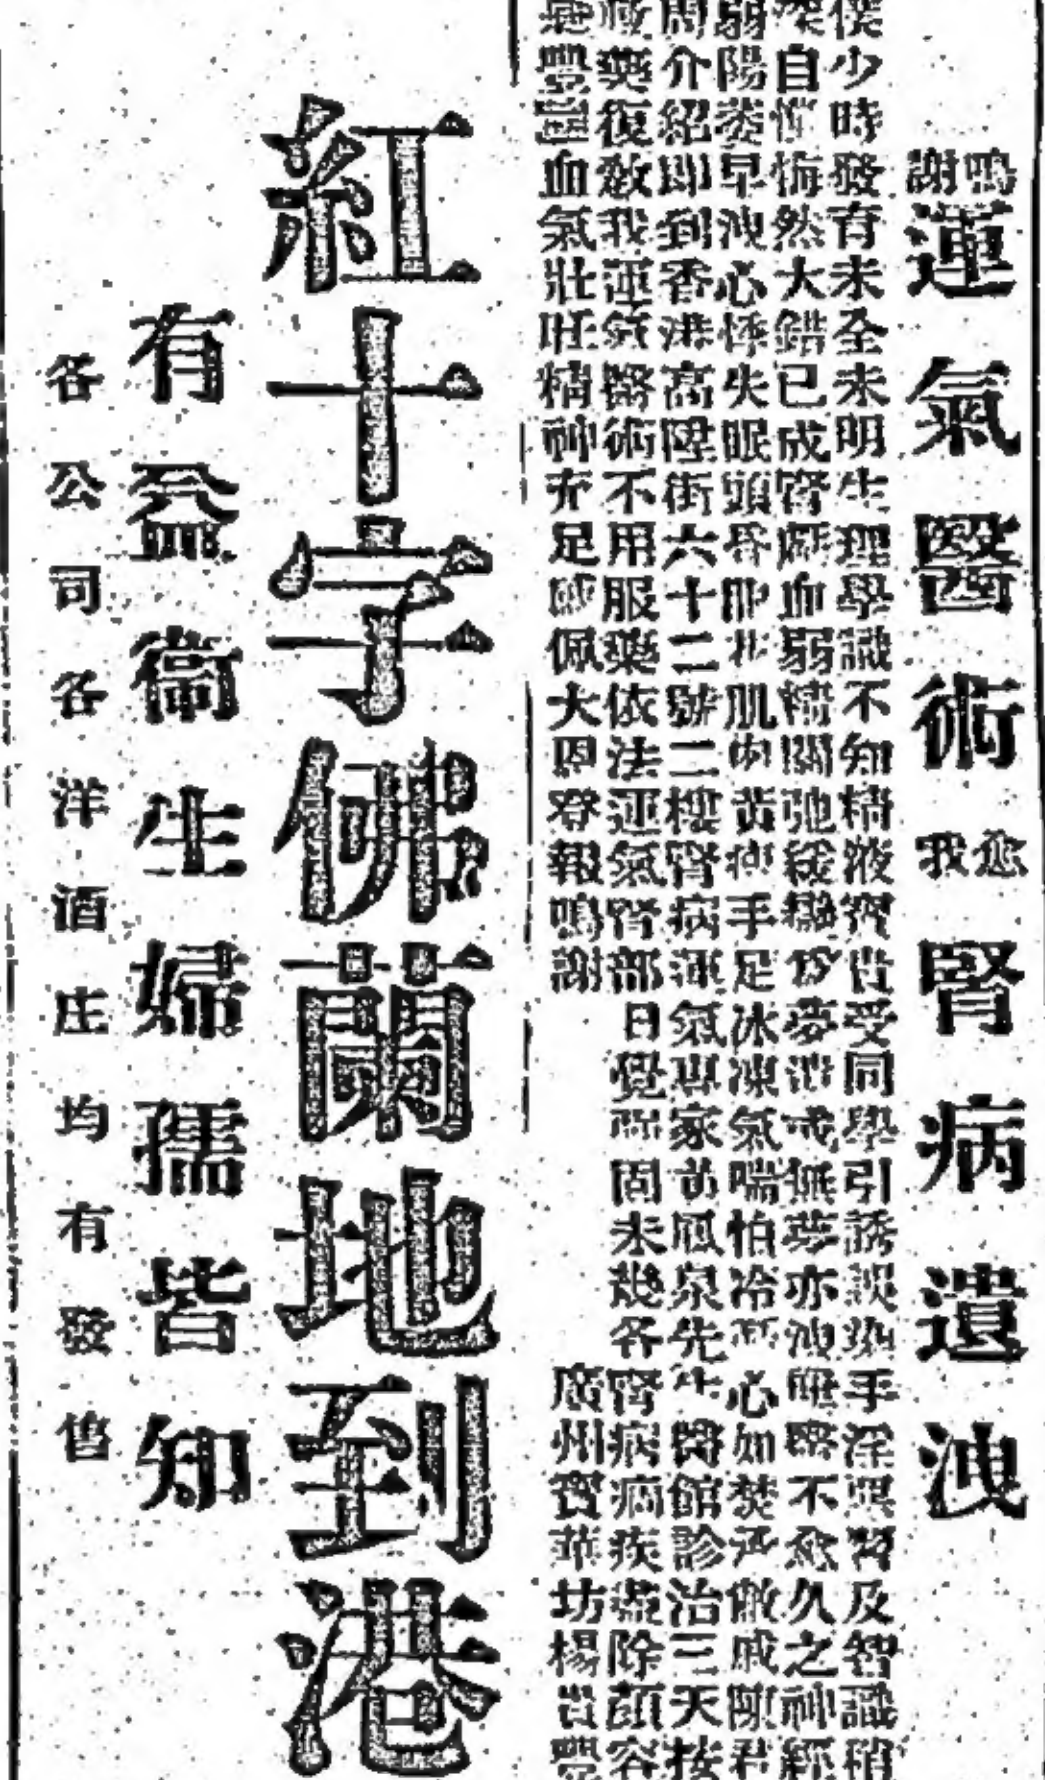 鳴謝 運氣醫術 愈我 腎病遺洩
僕少時發育未全未明生理學識不知精液寶貴受同學引誘誤染手淫與腎及智識稍
深自慚悔然大錯已成腎虧血弱精關弛緩夢洩或無夢亦洩醫不愈久之神經
弱陽萎早洩心悸失眠頭昏肌肉黃手足冰凍氣喘怕冷心如焚戚陳君
周介紹即到香港高陞街六十二號二樓腎病運氣專家黃鳳泉先生醫館診治三天按
藥復教我運氣醫術不用服藥依法運氣腎部日覺固未幾各腎病病疾盡除顏容
豐血氣壯旺精神充足感佩大恩登報鳴謝 廣州寶華坊楊
紅十字佛蘭地到港
有益衛生婦孺皆知
各公司各洋酒庄均有發售